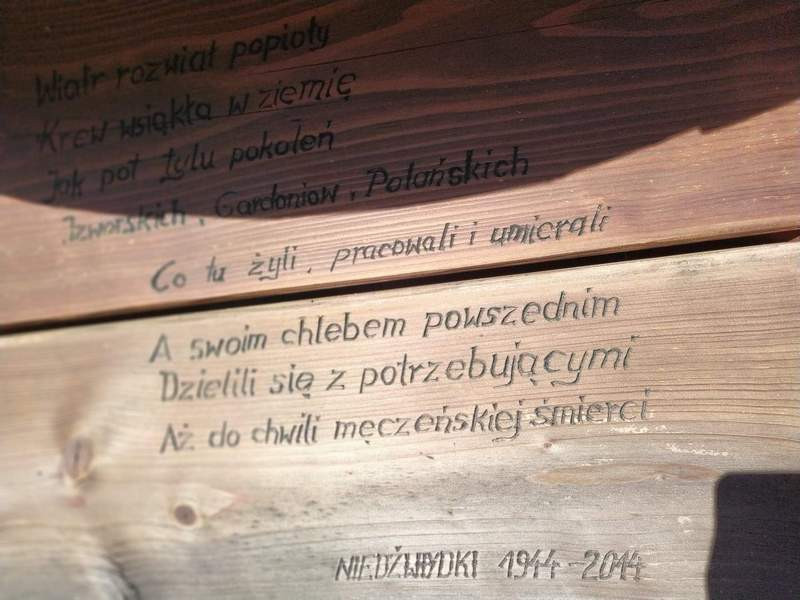 Wiatr rozwiał popioły
Krew wsiąkła w ziemię
Jak pot tylu pokoleń
Jzworskich, Gardoniow, Polańskich
Co tu żyli, pracowali i umierali
A swoim chlebem powszednim
Dzielili się z potrzebującymi
Aż do chwili męczeńskiej śmierci
NIEDŹWIDKI 1944-2014